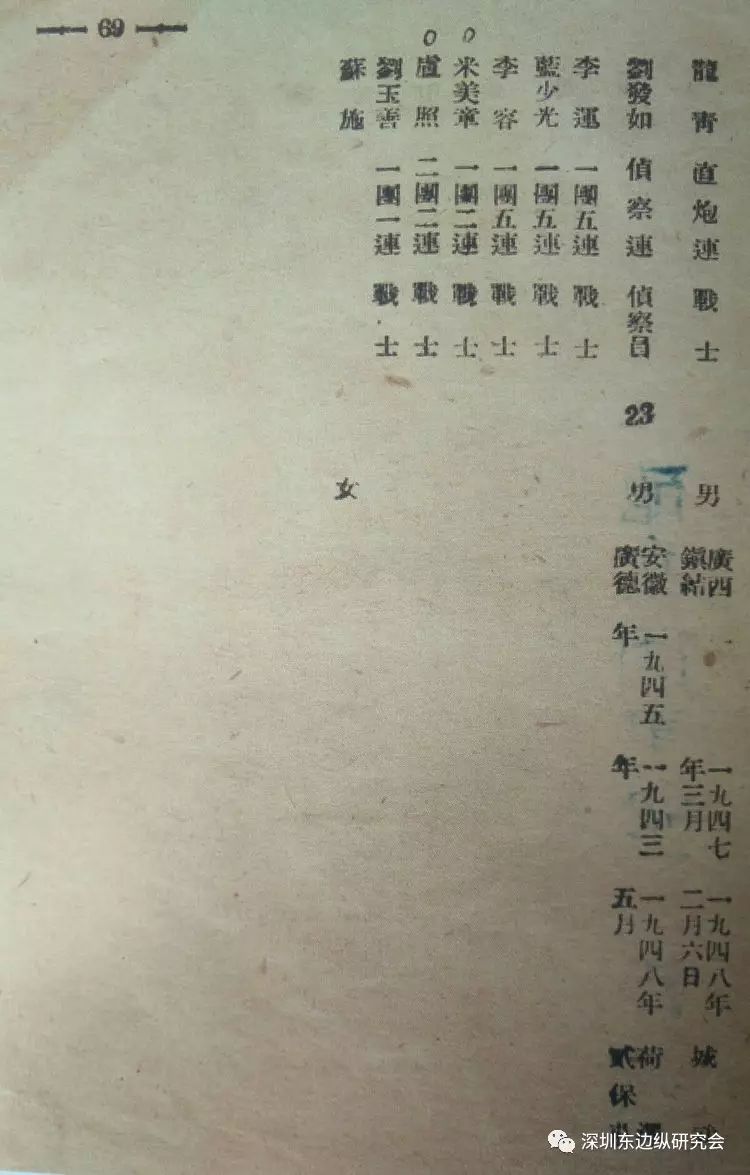 69
龍宵 直炮連 戰士 男 廣西鎮結 一九四七年三月 一九四八年二月六日 城
劉發如 偵察連 偵察員 23 男 安徽廣德 一九四五年 一九四三年 一九四八年五月 荷 保
李運 一團五連 戰士
藍少光 一團五連 戰士
李容 一團五連 戰士
米美章 一團二連 戰士
盧照 二團二連 戰士
劉玉善 一團一連 戰士
蘇施 女
深圳东边纵研究会